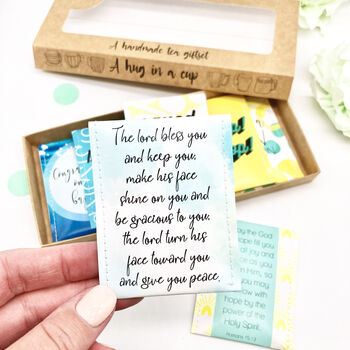 A handmade tea giftset
A hug in a cup
The lord bless you
and keep you;
make his face
shine on you and
be gracious to you;
the lord turn his
face toward you
and give you peace.
by the God
hope fill you
all joy and
as you
in Him, so
you may
ow with
hope by the
power of the
Holy Spirit.
Romans 15:13